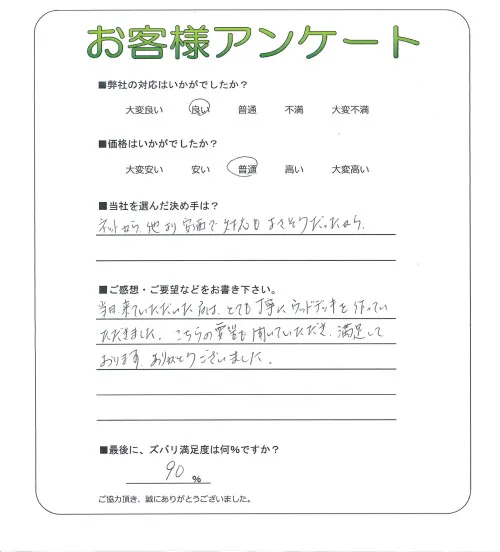 お客様アンケート
■弊社の対応はいかがでしたか？
大変良い 良い 普通 不満 大変不満
■価格はいかがでしたか？
大変安い 安い 普通 高い 大変高い
■当社を選んだ決め手は？
ネットから、他より安価で対応もよさそうだったから。
■ご感想・ご要望などをお書き下さい。
当日来ていただいた方は、とても丁寧にウッドデッキを作ってい
ただきました。こちらの要望も聞いていただき、満足して
おります。ありがとうございました。
■最後に、ズバリ満足度は何%ですか？
90 %
ご協力頂き、誠にありがとうございました。